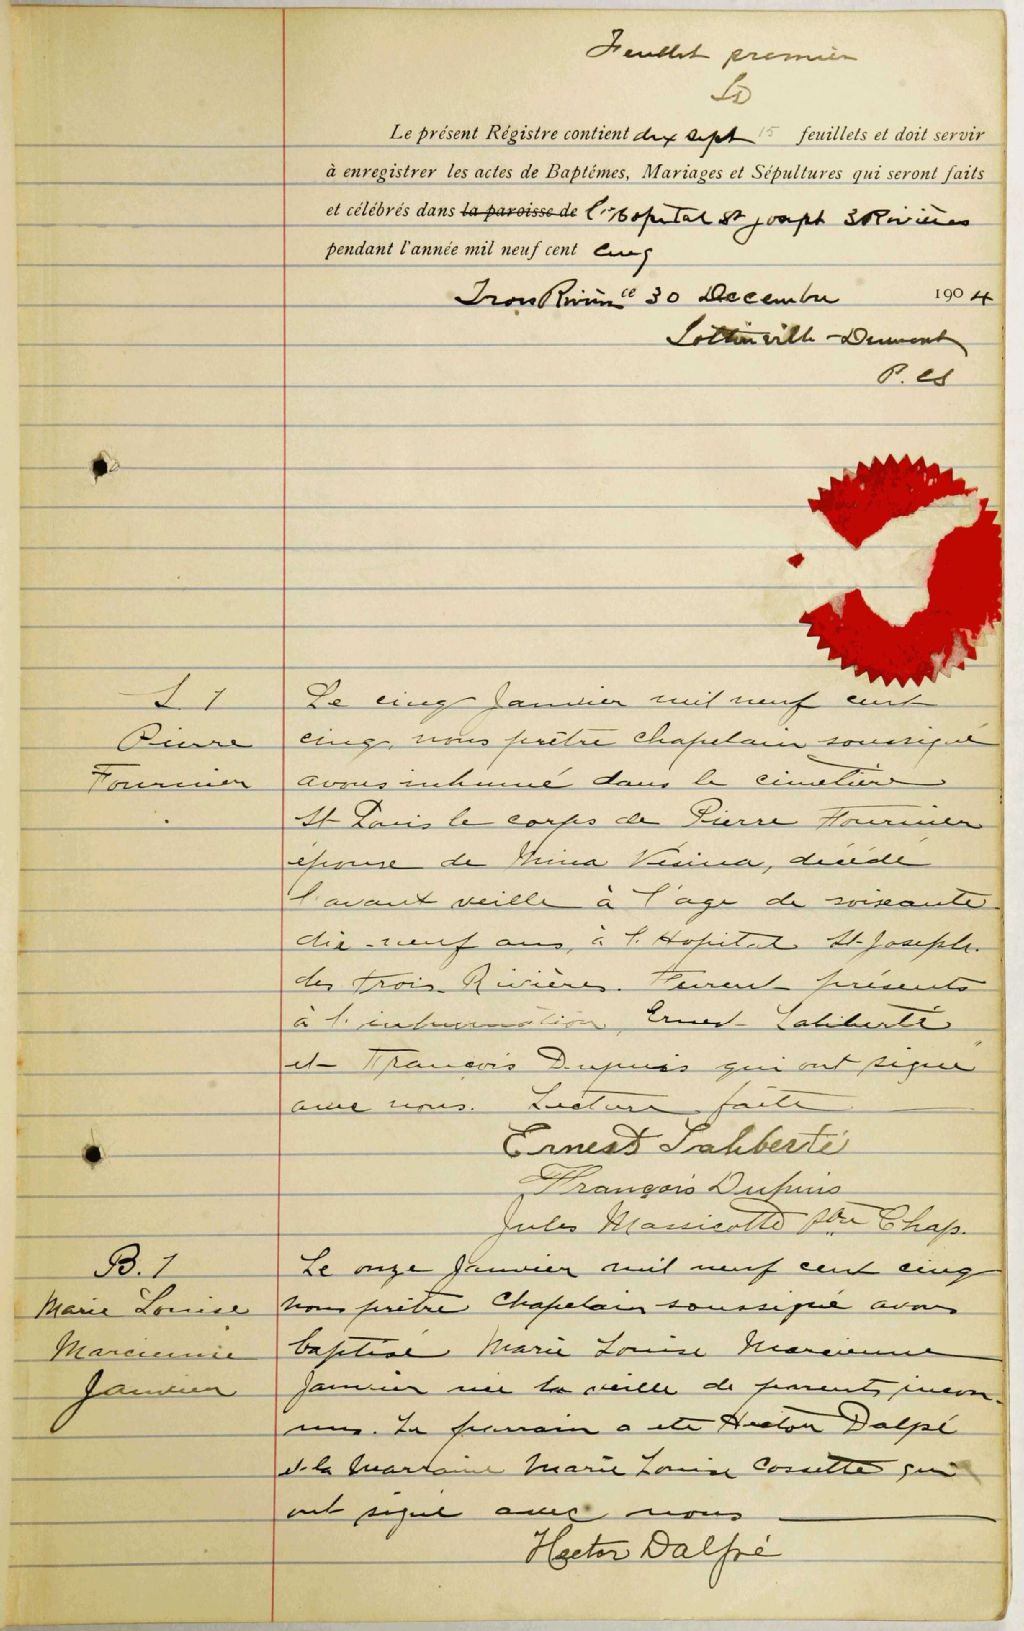 Feuillet premier
LD
Le présent Régistre contient dix sept 15 feuillets et doit servir
à enregistrer les actes de Baptêmes, Mariages et Sépultures qui seront faits
et célébrés dans la paroisse de l'hopital St joseph 3 Rivières
pendant l'année mil neuf cent cinq
Trois Rivières ce 30 Decembre 1904
Lottinville Dumont
P. CS
S. 1
Pierre
Fournier
Le cinq Janvier mil neuf cent
cinq, nous prêtre chapelain soussigné
avons inhumé dans le cimetière
St Louis le corps de Pierre Fournier
époux de Mina Vésina, décédé
l'avant veille à l'age de soixante
dix-neuf ans, à l'Hopital St-Joseph
des Trois-Rivières. Furent présents
à l'inhumation, Ernest Laliberté
et François Dupuis qui ont signé
avec nous. Lecture faite
Ernest Laliberté
François Dupuis
Jules Massicotte ptre Chap.
B. 1
Marie Louise
Marcienne
Janvier
Le onze Janvier mil neuf cent cinq
nous prêtre chapelain soussigné avons
baptisé Marie Louise Marcienne
Janvier née la veille de parents incon-
nus. Le parrain a ete Hector Dalpé
et la marraine Marie Louise Cossette qui
ont signé avec nous
Hector Dalpé